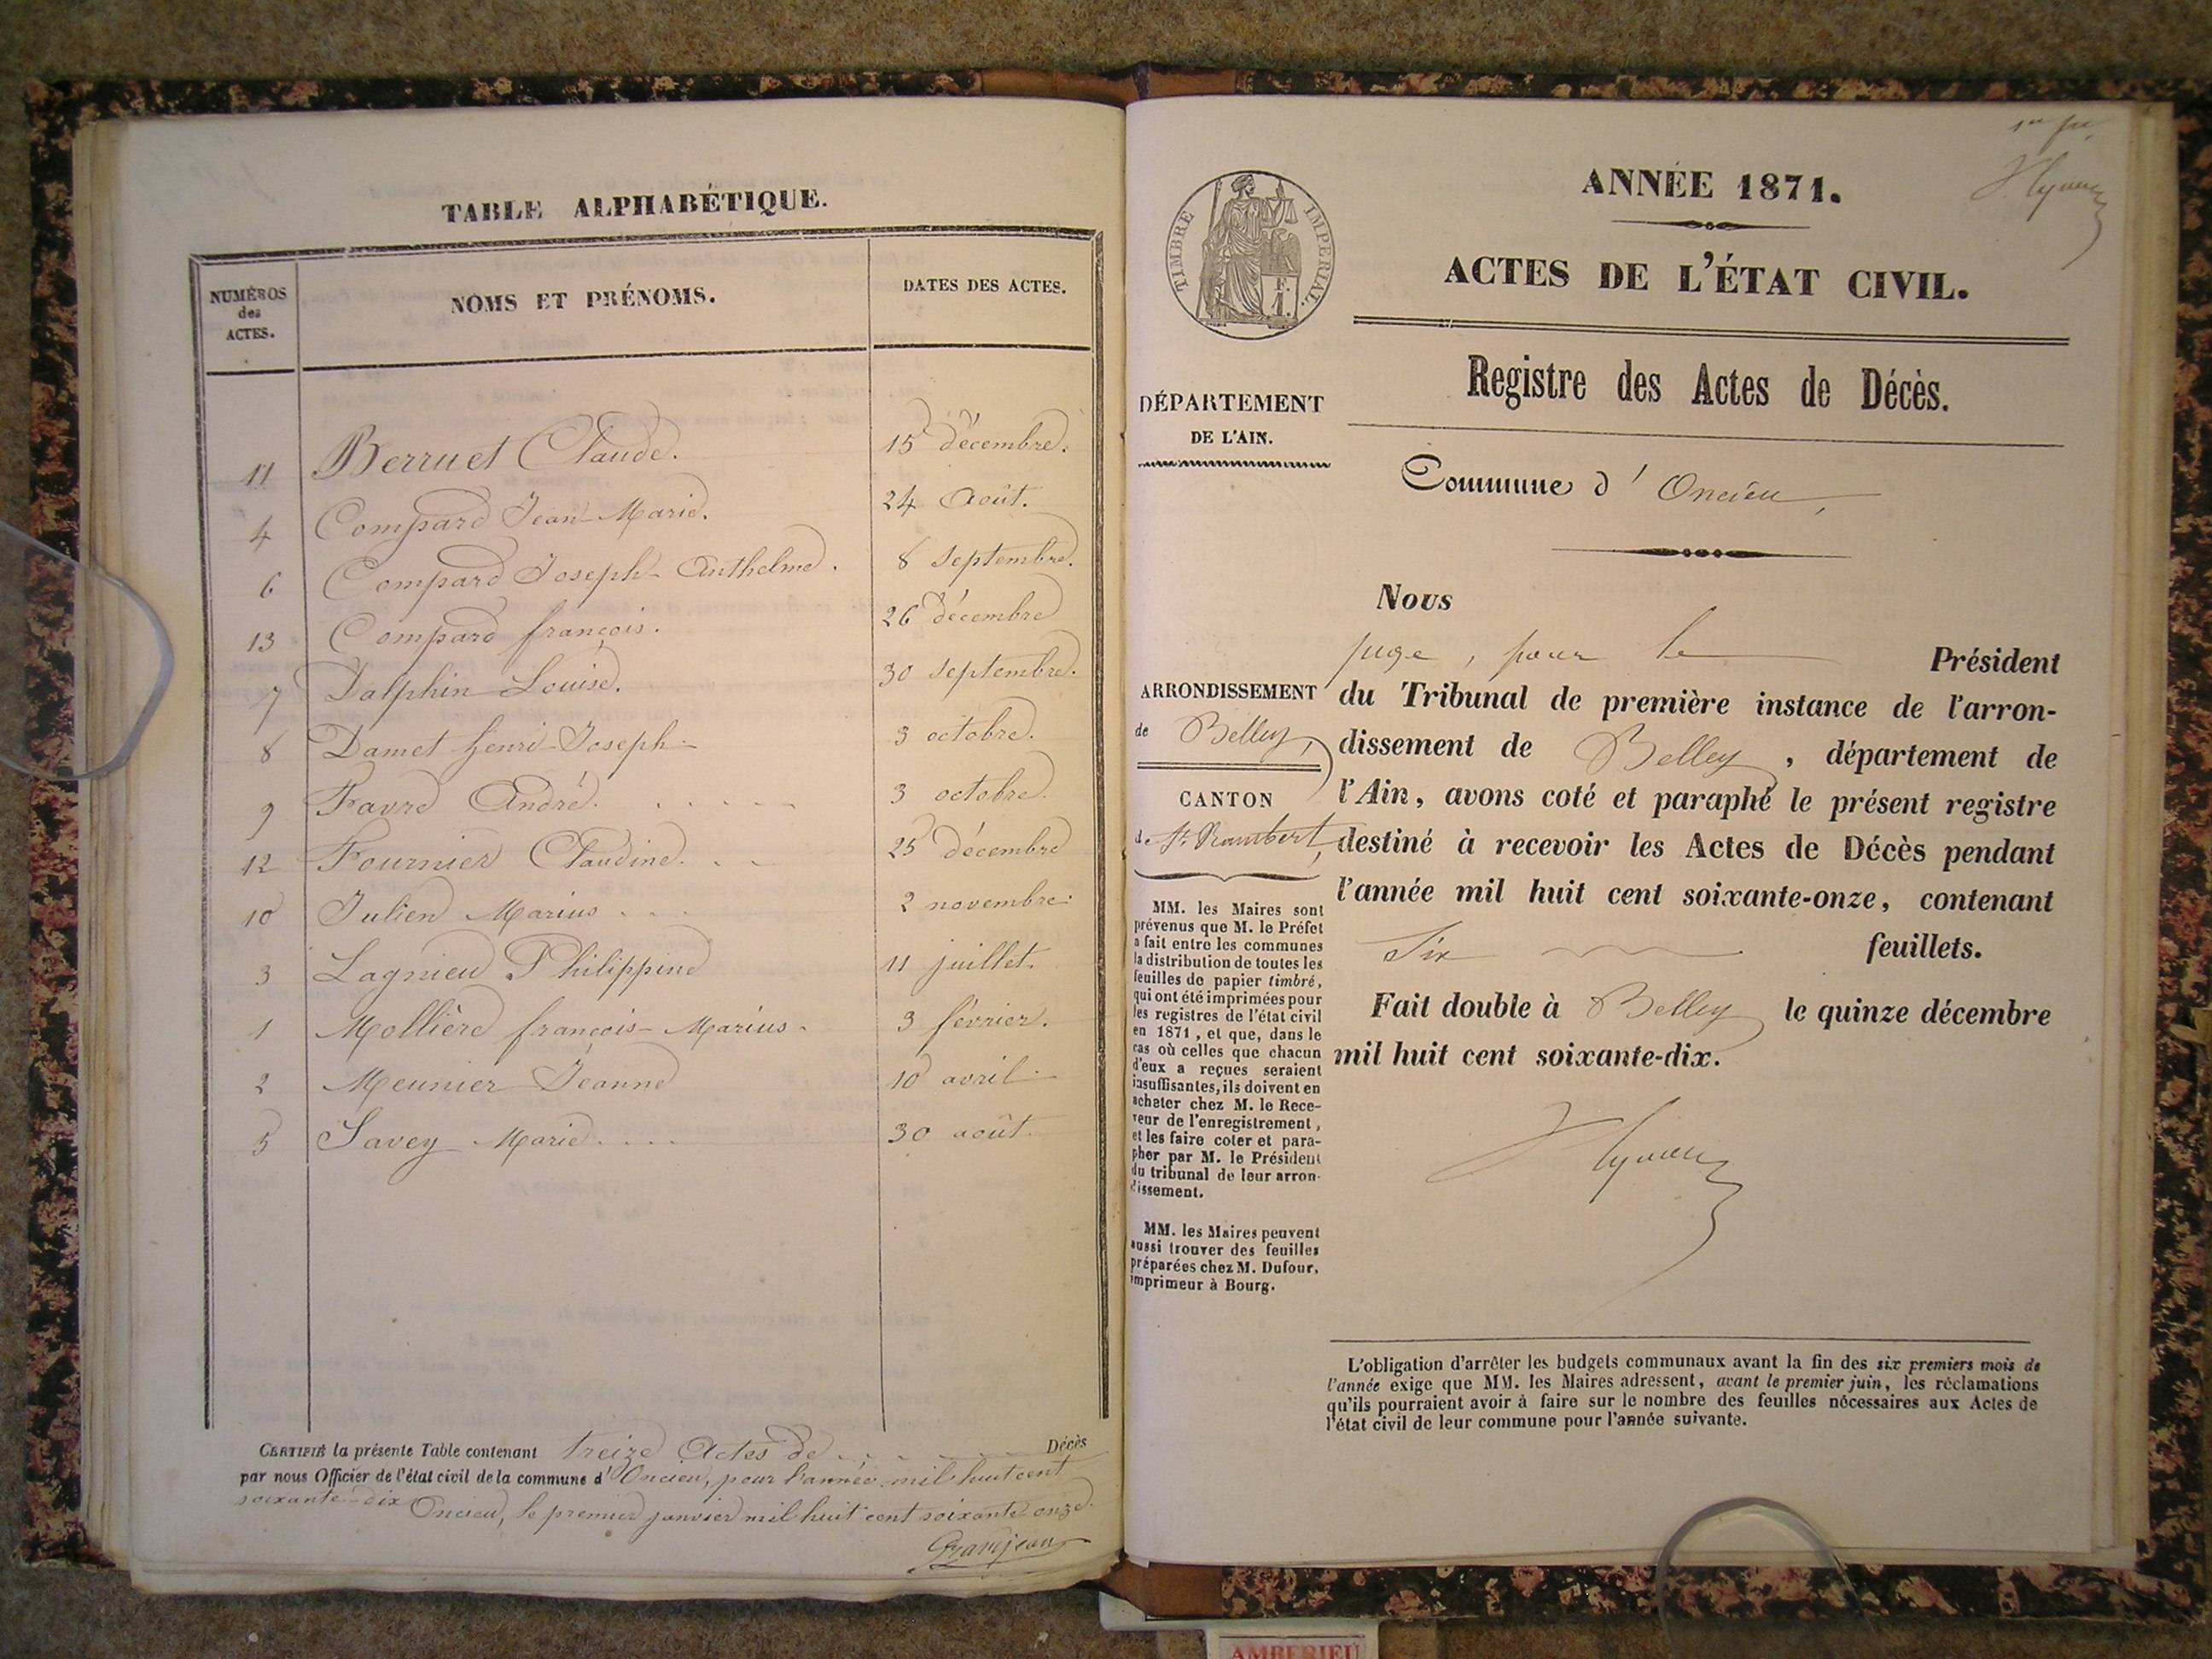 TABLE ALPHABÉTIQUE.
NUMÉROS
des
ACTES.
NOMS ET PRÉNOMS.
DATES DES ACTES.
11 Berruet Claude. 15 décembre.
4 Compard Jean-Marie. 24 Août.
6 Compard Joseph-Anthelme. 8 septembre.
13 Compard françois. 26 décembre
7 Dalphin Louise. 30 septembre.
8 Damet henri-Joseph 3 octobre.
9 Favre André. 3 octobre.
12 Fournier Claudine. 25 décembre
10 Julien Marius 2 novembre.
3 Lagnieu Philippine 11 juillet.
1 Mollière françois-Marius. 3 février.
2 Meunier Jeanne 10 avril
5 Savey Marie. 30 août.
CERTIFIÉ la présente Table contenant treize Actes de Décès
par nous Officier de l'état civil de la commune d'Oncieu, pour l'année mil huit cent
soixante-dix
Oncieu, le premier janvier mil huit cent soixante onze.
Granjean
ANNÉE 1871.
ACTES DE L'ÉTAT CIVIL.
TIMBRE IMPÉRIAL.
F.
1.
Registre des Actes de Décès.
DÉPARTEMENT
DE L'AIN.
Commune d'Oncieu,
ARRONDISSEMENT
de Belley,
CANTON
de St. Rambert,
MM. les Maires sont
prévenus que M. le Préfet
a fait entre les communes
la distribution de toutes les
feuilles de papier timbré,
qui ont été imprimées pour
les registres de l'état civil
en 1871, et que, dans le
cas où celles que chacun
d'eux a reçues seraient
insuffisantes, ils doivent en
acheter chez M. le Rece-
veur de l'enregistrement,
et les faire coter et para-
pher par M. le Président
du tribunal de leur arron-
dissement.
MM. les Maires peuvent
aussi trouver des feuilles
préparées chez M. Dufour,
imprimeur à Bourg.
Nous
juge, pour le Président
du Tribunal de première instance de l'arron-
dissement de Belley, département de
l'Ain, avons coté et paraphé le présent registre
destiné à recevoir les Actes de Décès pendant
l'année mil huit cent soixante-onze, contenant
Six feuillets.
Fait double à Belley le quinze décembre
mil huit cent soixante-dix.
L'obligation d'arrêter les budgets communaux avant la fin des six premiers mois de
l'année exige que MM. les Maires adressent, avant le premier juin, les réclamations
qu'ils pourraient avoir à faire sur le nombre des feuilles nécessaires aux Actes de
l'état civil de leur commune pour l'année suivante.
AMBERIEU